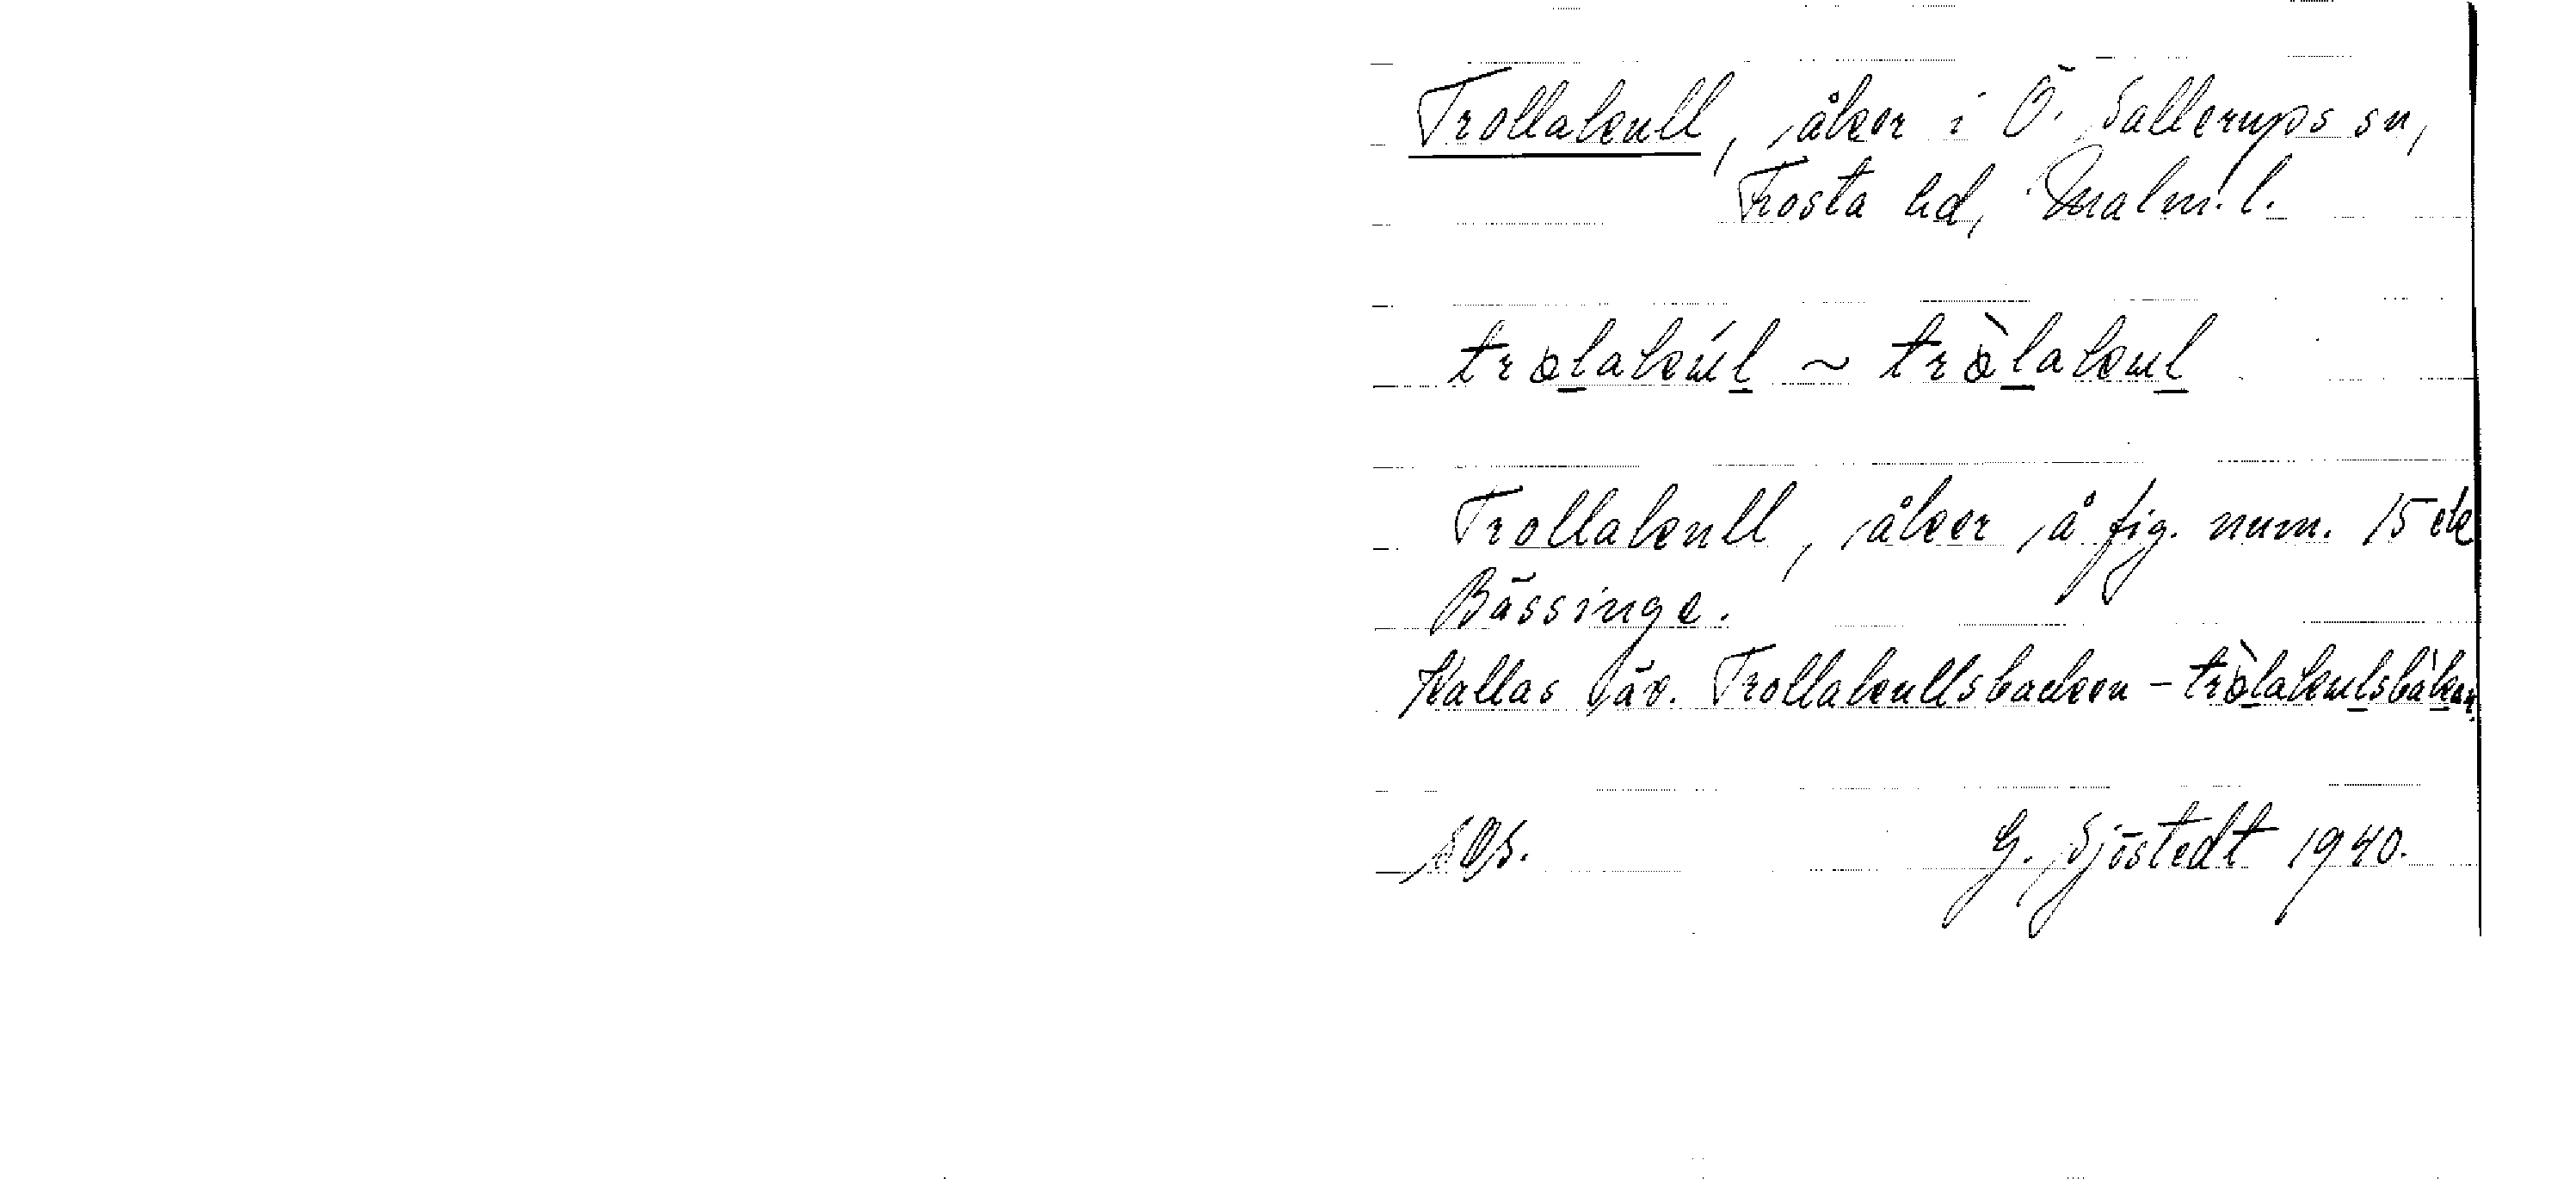 Trollakull, åker i Ö. Sallerups sn,
Frosta hd, Malm. l.
trolakúl ~ tròlakul
Trollakull, åker å fig. num. 15 ek
Bässinge.
Kallas äv. Trollakullsbacken – tròlakulsbàkan
SOs.
G. Sjöstedt 1940.